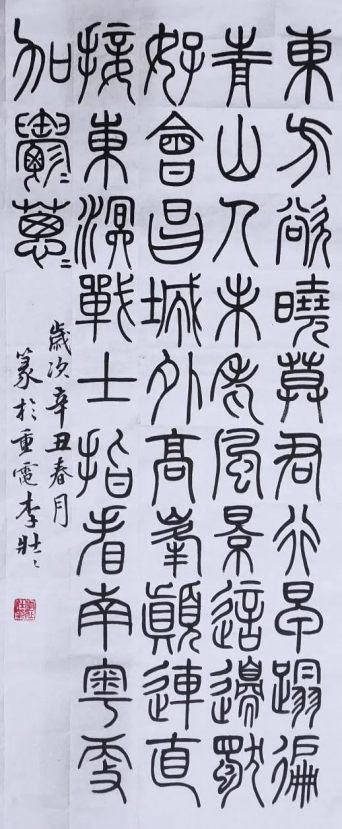 東方欲曉莫君行早蹋徧
青山人未老風景這邊獨
好會昌城外高峯顛連直
接東溟戰士指看南粵更
加鬱〻蔥〻
歲次辛丑春月
篆於重電李壯〻